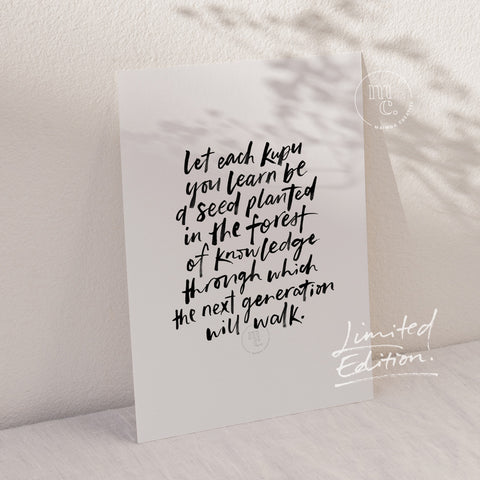 mc
Let each kupu
you learn be
a seed planted
in the forest
of knowledge
through which
the next generation
will walk.
mc
Limited
Edition!